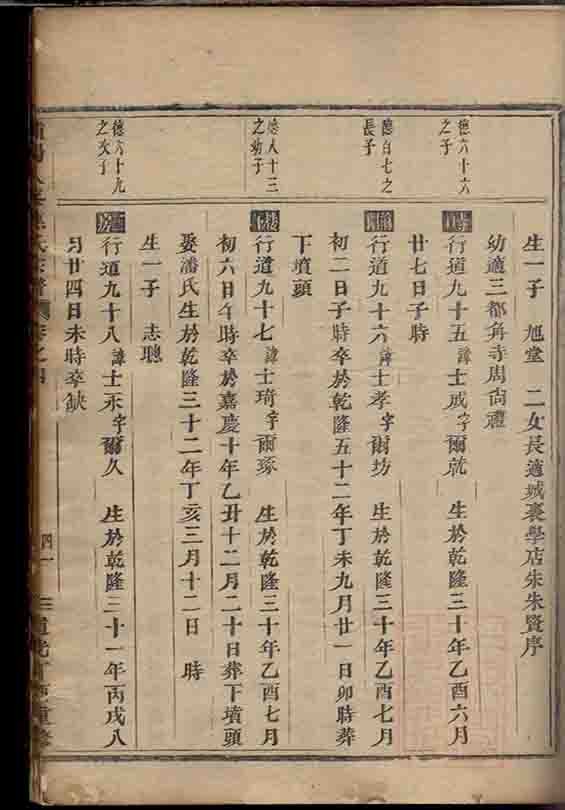 生一子　旭堂　二女長適城裏學店朱朱賢序
幼適三都角寺周尙禮
德六十六
之子
行道九十五諱士成字爾就　生於乾隆三十年乙酉六月
廿七日子時
德百七之
長子
行道九十六諱士孝字爾坊　生於乾隆三十年乙酉七月
初二日子時卒於乾隆五十二年丁未九月廿一日卯時葬
下墳頭
德八十三
之幼子
行道九十七諱士琦字爾琢　生於乾隆三十年乙酉七月
初六日午時卒於嘉慶十年乙丑十二月二十日葬下墳頭
娶潘氏生於乾隆三十二年丁亥三月十二日　時
生一子　志聰
德六十九
之次子
行道九十八諱士永字爾久　生於乾隆三十一年丙戌八
月廿四日未時卒缺
氏宗譜
卷之
四一
道光丁酉重修